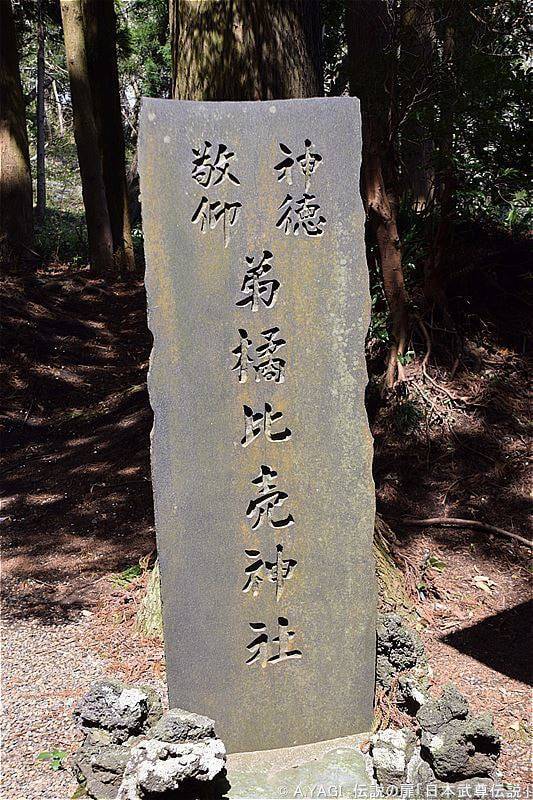 神徳
敬仰
弟橘比売神社
© A.YAGI 伝説の扉「日本武尊伝説」